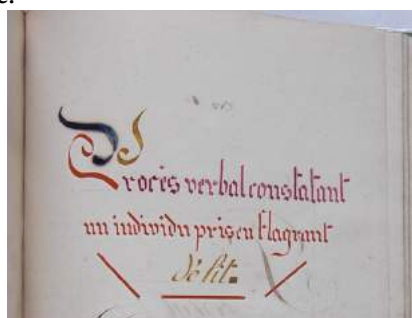 Procès verbal constatant
un individu pris en flagrant
délit.